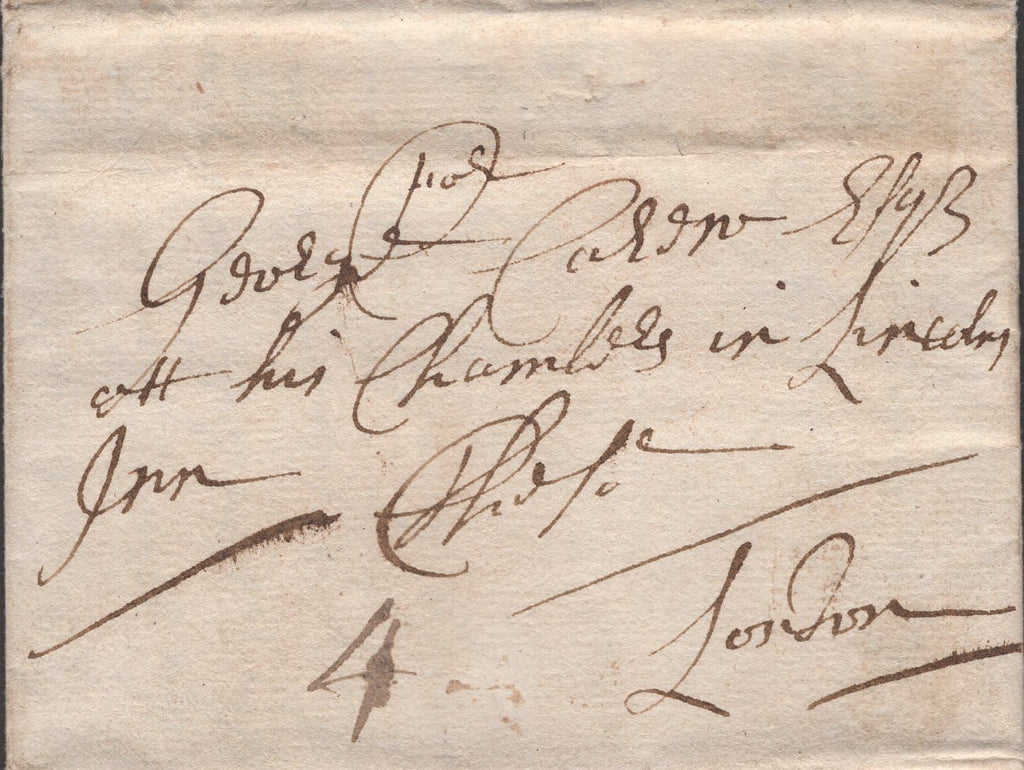 For
George Carew Esqr
att his Chambers in Lincolns
Inn These
London
4